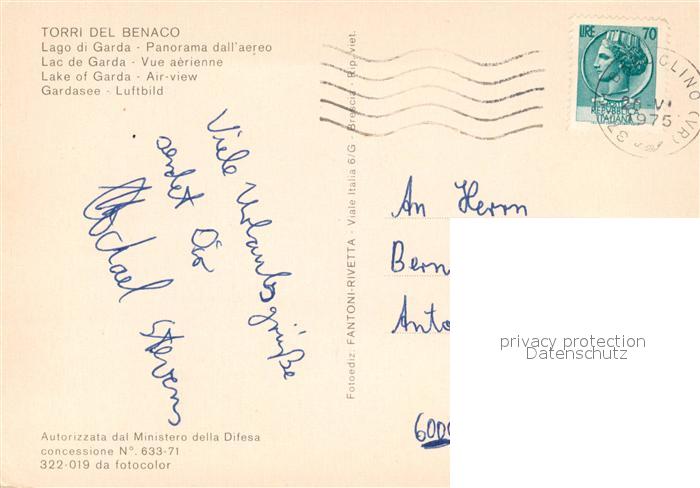 TORRI DEL BENACO
Lago di Garda - Panorama dall'aereo
Lac de Garda - Vue aérienne
Lake of Garda - Air-view
Gardasee - Luftbild
Viele Urlaubsgrüße
sendet Dir
Michael Stevens
Autorizzata dal Ministero della Difesa
concessione N°. 633-71
322-019 da fotocolor
Fotoediz: FANTONI-RIVETTA - Viale Italia 6/G - Brescia - Rip. viet.
LIRE 70
REPUBBLICA
ITALIANA
GLINO (VR)
1975
An Herrn
Bern
Anto
6000
privacy protection
Datenschutz